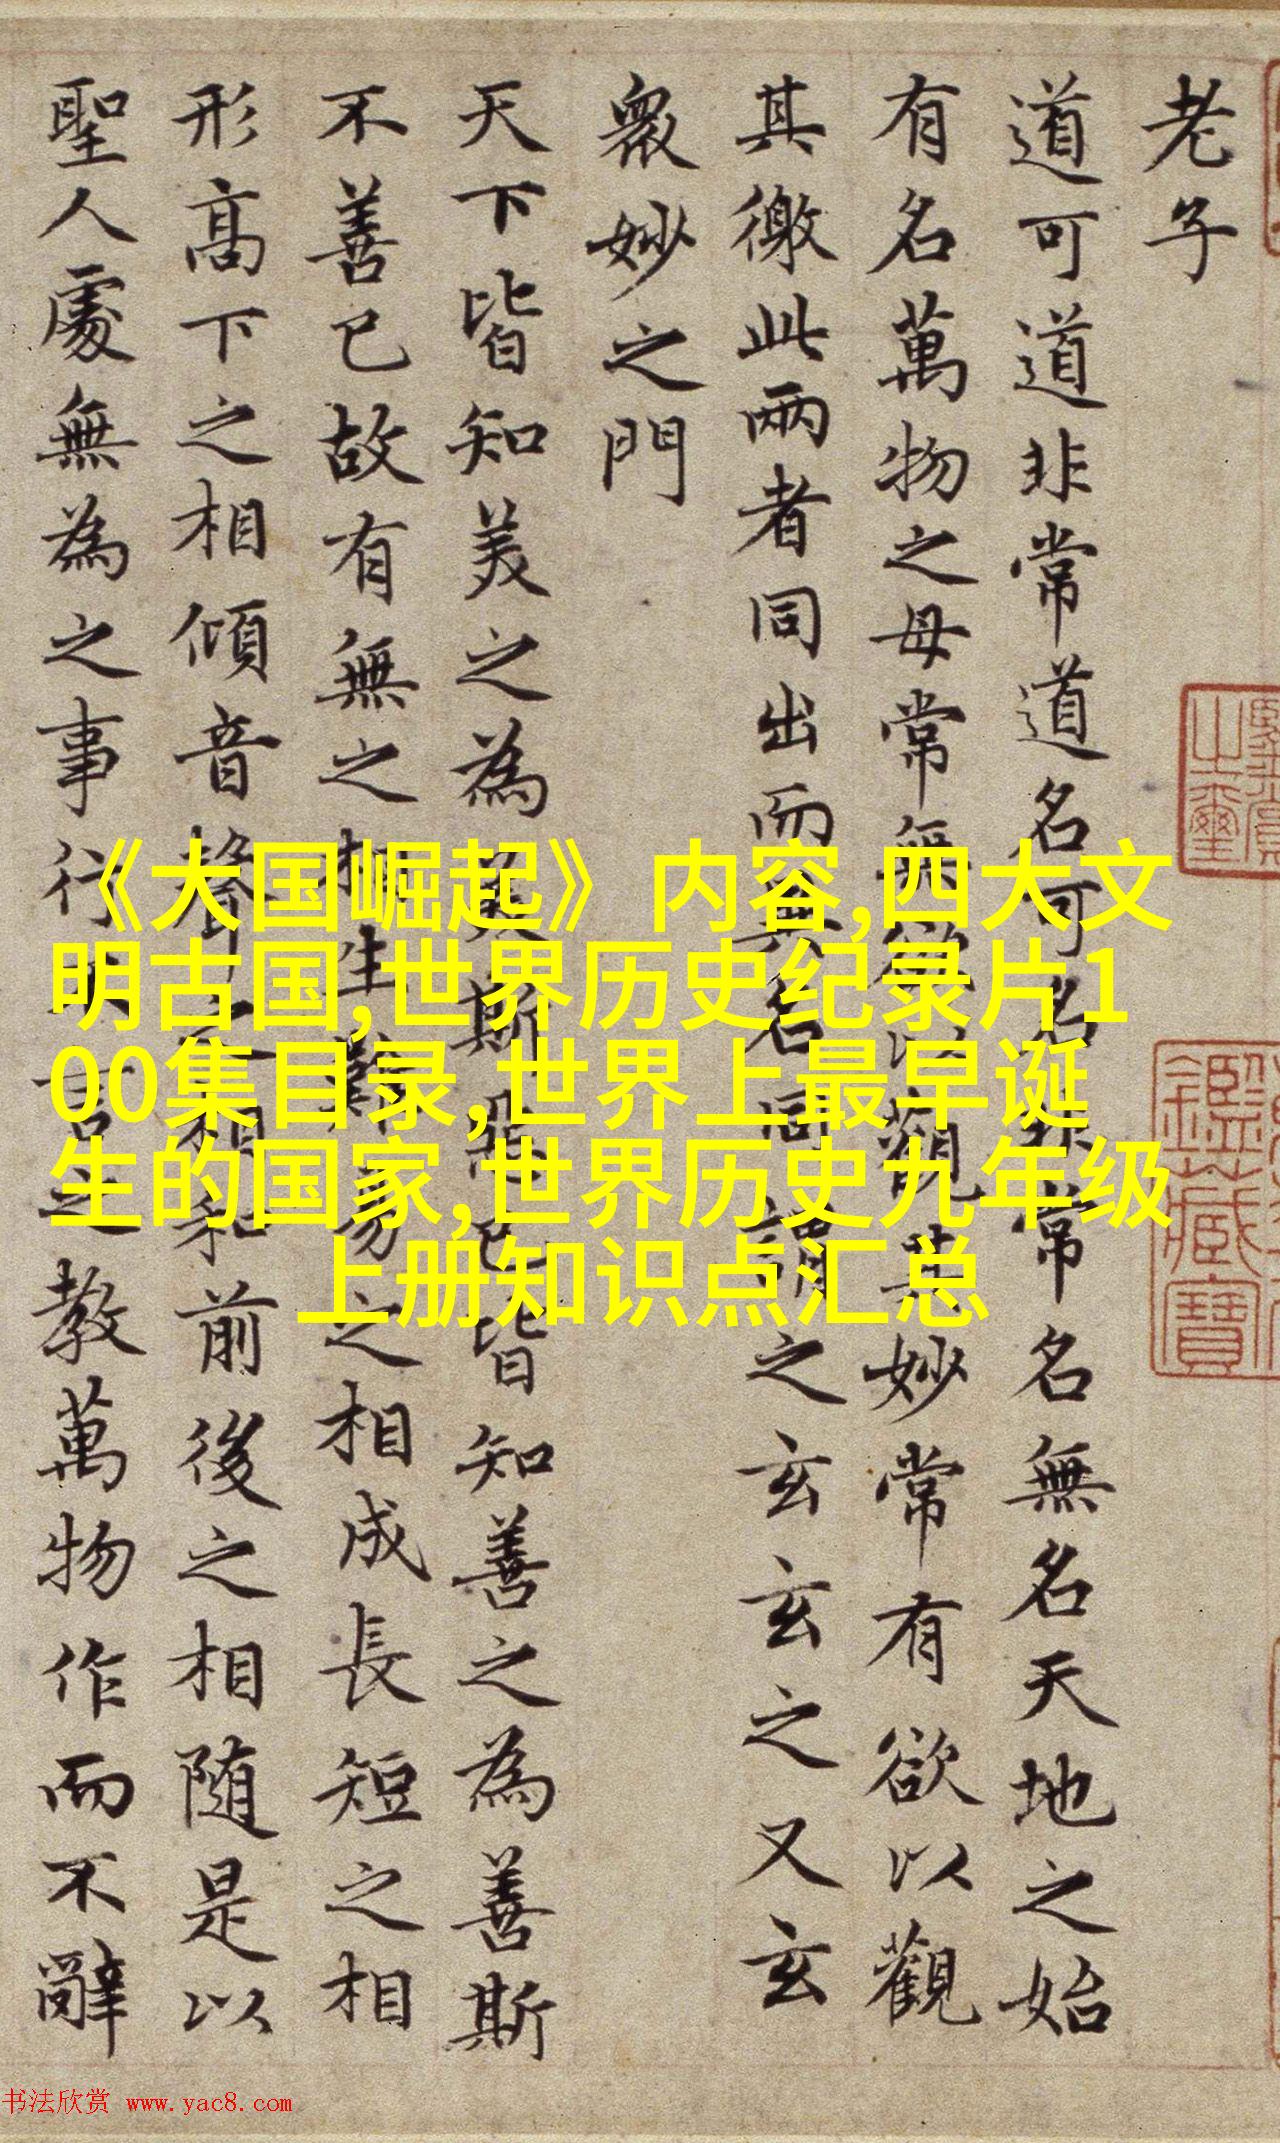 老子
道可道非常道名可名非常名無名天地之始
有名萬物之母常無欲以觀其妙常有欲以觀
其徼此兩者同出而異名同謂之玄玄之又玄
衆妙之門
天下皆知美之為美斯惡已皆知善之為善斯
不善已故有無之相生難易之相成長短之相
形高下之相傾音聲之相和前後之相随是以
聖人處無為之事行不言之教萬物作而不辭
《大国崛起》内容,四大文
明古国,世界历史纪录片1
00集目录,世界上最早诞
生的国家,世界历史九年级
上册知识点汇总
鑑藏寶
书法欣赏 www.yac8.com